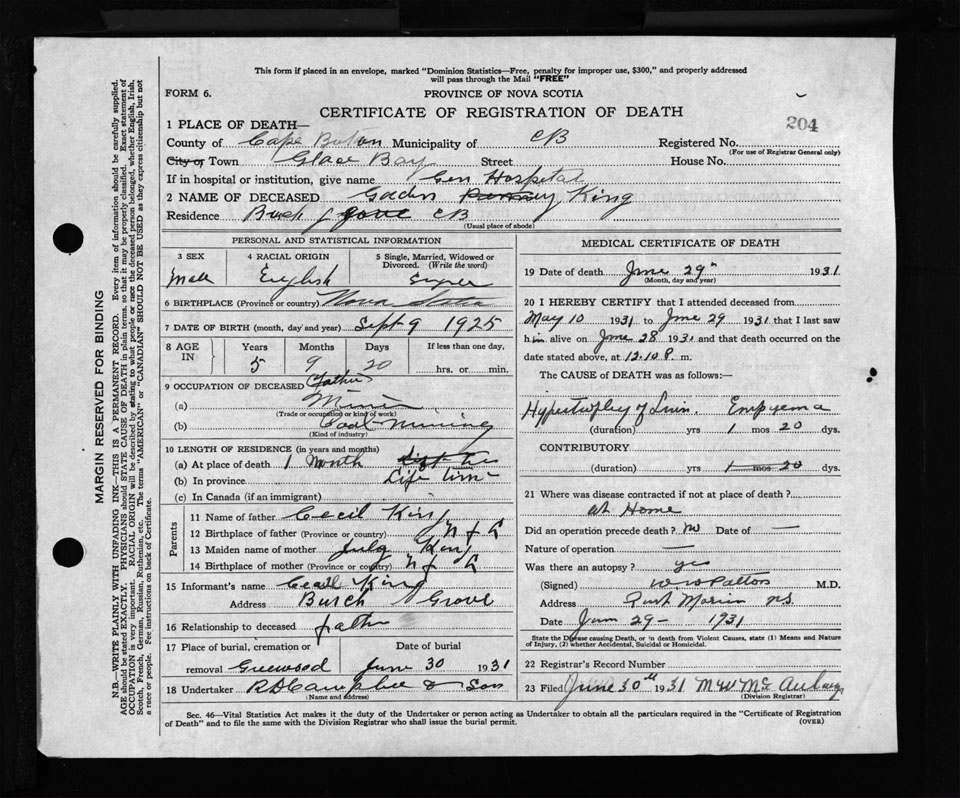 This form if placed in an envelope, marked "Dominion Statistics—Free, penalty for improper use, $300," and properly addressed
will pass through the Mail "FREE"
FORM 6.
PROVINCE OF NOVA SCOTIA
CERTIFICATE OF REGISTRATION OF DEATH
204
1 PLACE OF DEATH—
County of Cape Breton Municipality of CB Registered No.
(For use of Registrar General only)
City or Town Glace Bay Street House No.
If in hospital or institution, give name Gen Hospital
2 NAME OF DECEASED King
Residence CB
(Usual place of abode)
PERSONAL AND STATISTICAL INFORMATION
3 SEX 4 RACIAL ORIGIN 5 Single, Married, Widowed or Divorced. (Write the word)
Male English Single
6 BIRTHPLACE (Province or country) Nova Scotia
7 DATE OF BIRTH (month, day and year) Sept 9 1925
8 AGE IN Years Months Days If less than one day,
5 9 20 hrs. or min.
9 OCCUPATION OF DECEASED Father
(a) Miner
(Trade or occupation or kind of work)
(b) Coal Mining
(Kind of industry)
10 LENGTH OF RESIDENCE (in years and months)
(a) At place of death 1 Month
(b) In province Life time
(c) In Canada (if an immigrant)
Parents
11 Name of father Cecil King
12 Birthplace of father (Province or country) N f L
13 Maiden name of mother King
14 Birthplace of mother (Province or country) N f L
15 Informant's name Cecil King
Address Burch Grove
16 Relationship to deceased father
17 Place of burial, cremation or Date of burial
removal Greenwood June 30 1931
18 Undertaker & Son
(Name and address)
MEDICAL CERTIFICATE OF DEATH
19 Date of death June 29th 1931
(Month, day and year)
20 I HEREBY CERTIFY that I attended deceased from
May 10 1931 to June 29 1931 that I last saw
him alive on June 28 1931 and that death occurred on the
date stated above, at 12.10 P. m.
The CAUSE of DEATH was as follows:—
Empyema
(duration) yrs 1 mos 20 dys.
CONTRIBUTORY
(duration) yrs 1 mos 20 dys.
21 Where was disease contracted if not at place of death?
at Home
Did an operation precede death? no Date of —
Nature of operation —
Was there an autopsy? yes
(Signed) M.D.
Address Port Morien NS
Date June 29— 1931
State the Disease causing Death, or in death from Violent Causes, state (1) Means and Nature
of Injury, (2) whether Accidental, Suicidal or Homicidal.
22 Registrar's Record Number
23 Filed June 30th 1931
(Division Registrar)
Sec. 46—Vital Statistics Act makes it the duty of the Undertaker or person acting as Undertaker to obtain all the particulars required in the "Certificate of Registration
of Death" and to file the same with the Division Registrar who shall issue the burial permit.
(OVER)
MARGIN RESERVED FOR BINDING
N.B.—WRITE PLAINLY WITH UNFADING INK—THIS IS A PERMANENT RECORD. Every item of information should be carefully supplied.
AGE should be stated EXACTLY. PHYSICIANS should STATE CAUSE OF DEATH in plain terms, so that it may be properly classified. Exact statement of
OCCUPATION is very important. RACIAL ORIGIN will be described by stating to what people or race the deceased person belonged, whether English, Irish,
Scotch, French, German, Russian, Ruthenian, etc. The terms "AMERICAN" or "CANADIAN" SHOULD NOT BE USED as they express citizenship but not
a race or people. See instructions on back of Certificate.